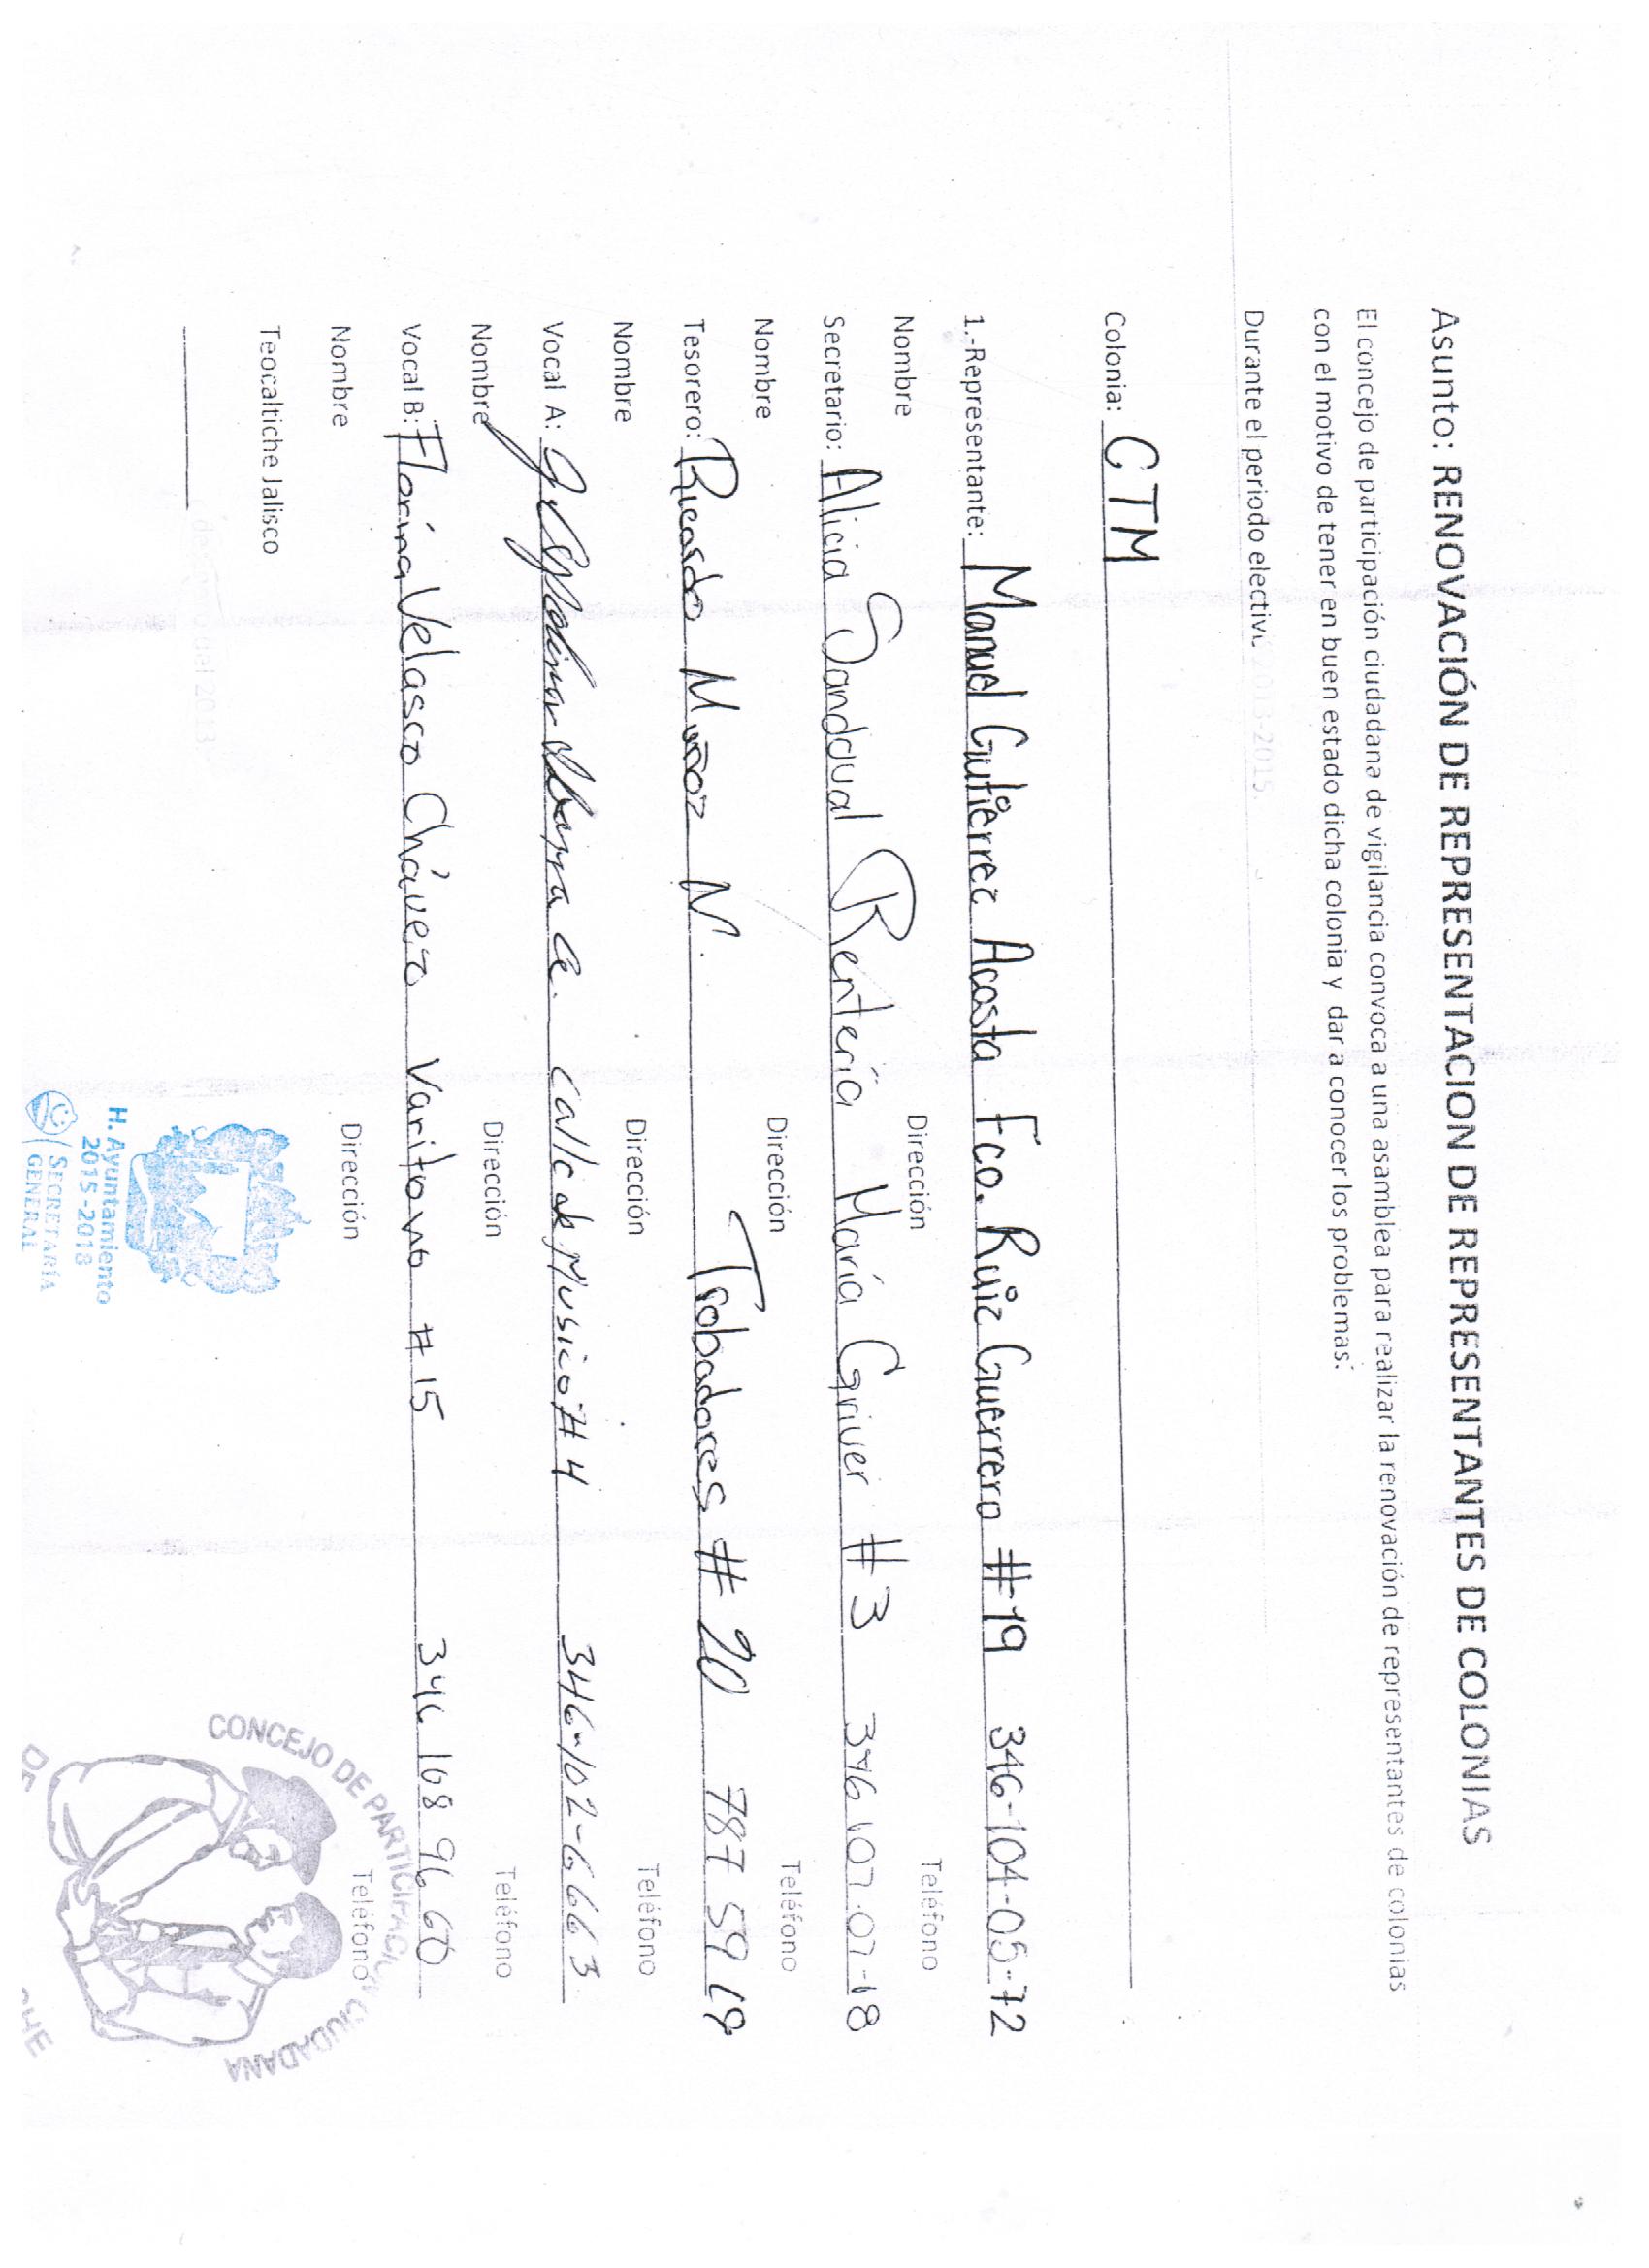 Asunto: RENOVACIÓN DE REPRESENTACION DE REPRESENTANTES DE COLONIAS
El concejo de participación ciudadana de vigilancia convoca a una asamblea para realizar la renovación de representantes de colonias
con el motivo de tener en buen estado dicha colonia y dar a conocer los problemas.
Durante el periodo electivo 2013-2015.
Colonia: CTM
1.-Representante: Manuel Gutiérrez Acosta Fco. Ruiz Guerrero #19 346-104-05-72
Nombre Dirección Teléfono
Secretario: Alicia Sandoval Rentería María Griver #3 346 107-07-18
Nombre Dirección Teléfono
Tesorero: Ricardo Muñoz N. Trobadores #20 787 59 19
Nombre Dirección Teléfono
Vocal A: a. Calle de Musico #4 346-102-6663
Nombre Dirección Teléfono
Vocal B: Florina Velasco Chávez Varitono #15 346 108 96 60
Nombre Dirección Teléfono
Teocaltiche Jalisco
del 2013
H. Ayuntamiento
2015-2018
SECRETARÍA
GENERAL
CONCEJO DE PARTICIPACIÓN CIUDADANA
DE
CHE